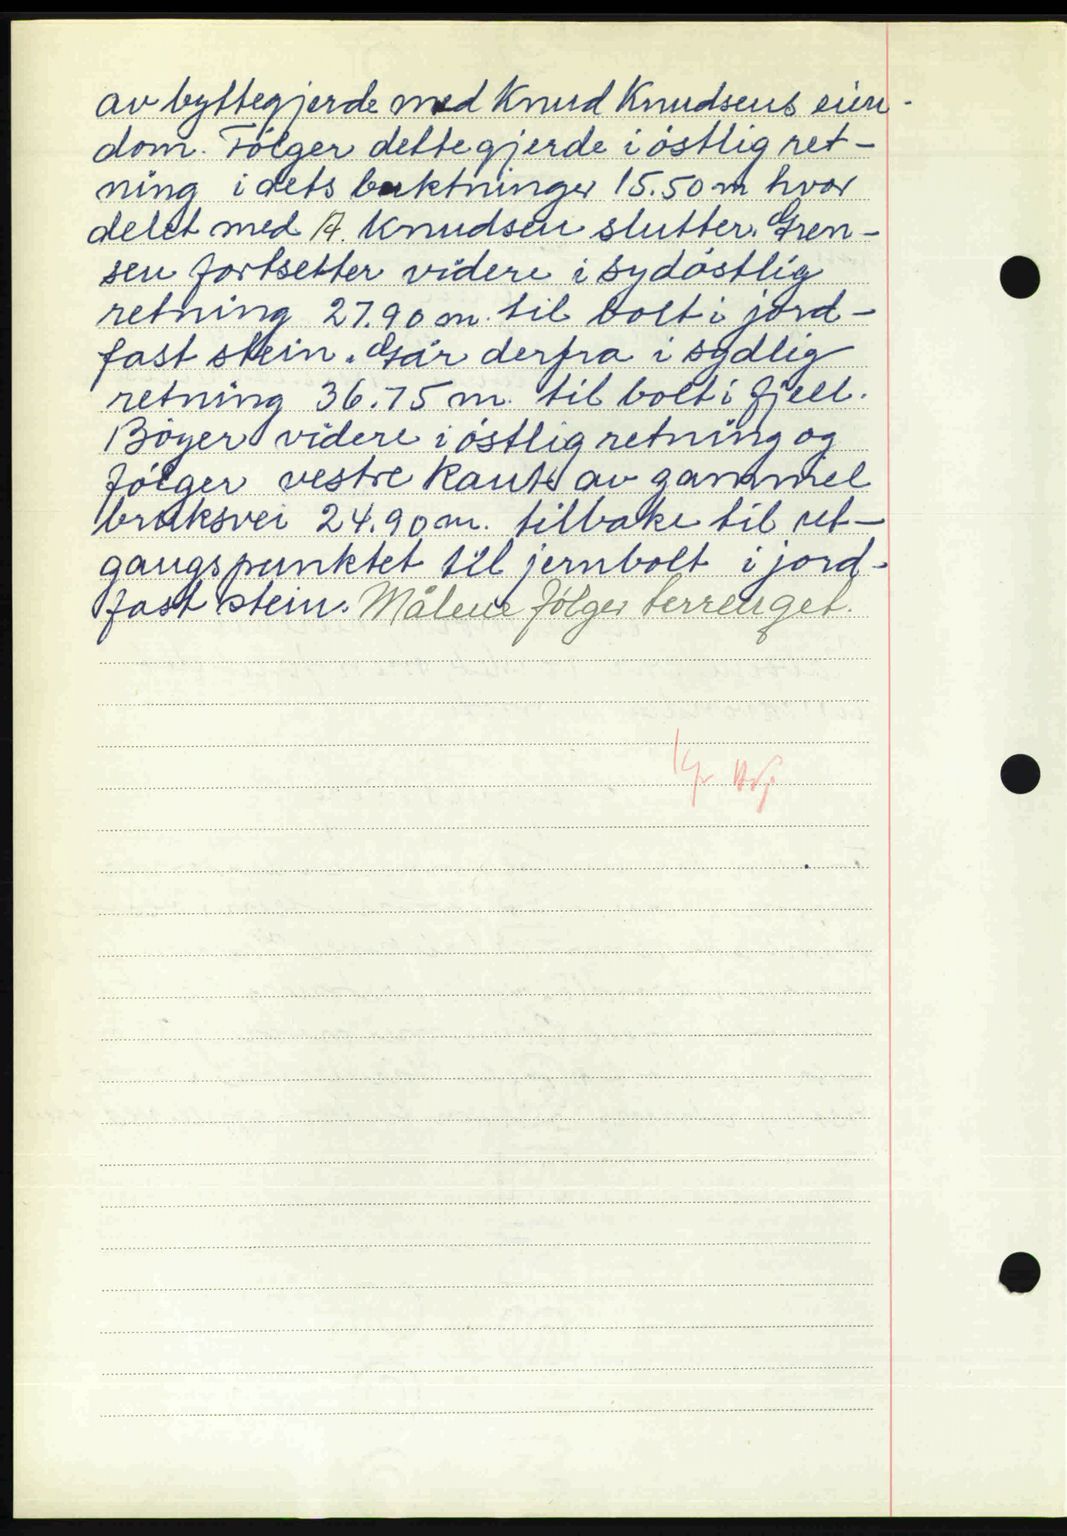 av byttegjerde med Knud Knudsens eien-
dom. Følger dette gjerde i östlig ret-
ning i dets buktninger 15.50 m hvor
delet med A. Knudsen slutter. Gren-
sen fortsetter videre i sydöstlig
retning 27.90 m. til bolt i jord-
fast stein. Går derfra i sydlig
retning 36.75 m. til bolt i fjell.
Böyer videre i östlig retning og
fölger vestre kant av gammel
bruksvei 24.90 m. tilbake til ut-
gangspunktet til jernbolt i jord-
fast stein. Målene følger terrenget.